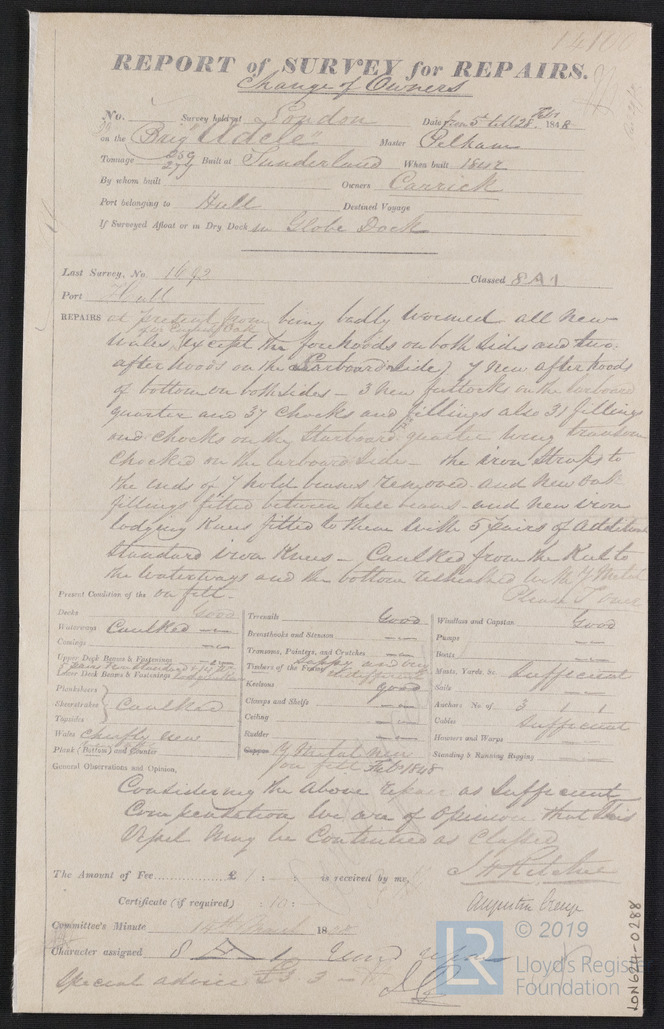 14100
REPORT of SURVEY for REPAIRS.
Change of Owners
No. Survey held at London Date, from 5th till 28th Feby 1848
on the Brig "Adele" Master Pelham
Tonnage 259 274 Built at Sunderland When built 1842
By whom built Owners Carrick
Port belonging to Hull Destined Voyage
If Surveyed Afloat or in Dry Dock in Globe Dock
Last Survey, No. 1692 Classed 8 A 1
Port Hull
REPAIRS at present from being badly wormed all new
of English Oak
Wales, (except the forehoods on both sides and two
afterhoods on the Starboard side) 7 new afterhoods
of bottom on both sides – 3 new futtocks on the larboard
quarter and 37 Chocks and fillings also 31 fillings
and chocks on the Starboard quarter wing transom
Chocked on the larboard side – the iron Straps to
the ends of 7 hold beams removed and new oak
fillings fitted between these beams – and new iron
lodging Knees fitted to them with 5 pairs of Additional
Standard iron Knees – Caulked from the Keel to
the Waterways and the bottom resheathed with Y Metal
on felt.
Present Condition of the
Decks Good
Waterways Caulked
Comings
Upper Deck Beams & Fastenings
Lower Deck Beams & Fastenings
Planksheers
Sheerstrakes Caulked
Topsides
Wales Chiefly new
Plank (Bottom) and Counter
Treenails Good
Breasthooks and Stemson
Transoms, Pointers, and Crutches
Timbers of the Frame
Keelsons good
Clamps and Shelfs
Ceiling
Rudder
Copper Y Metal new
on felt Feb 1848
Windlass and Capstan Good
Pumps
Boats
Masts, Yards, &c. Sufficient
Sails
Anchors No. of 3 1 1
Cables Sufficient
Hawsers and Warps
Standing & Running Rigging
General Observations and Opinion,
Considering the above repair as Sufficient
Compensation We are of Opinion that this
Vessel may be Continued as Classed
The Amount of Fee £ 1 is received by me,
Certificate (if required)
Committee's Minute 14th March 1848
Character assigned 8 A 1
Special advice £3 3
© 2019
LR
Lloyd's Register
Foundation
LON624-0288